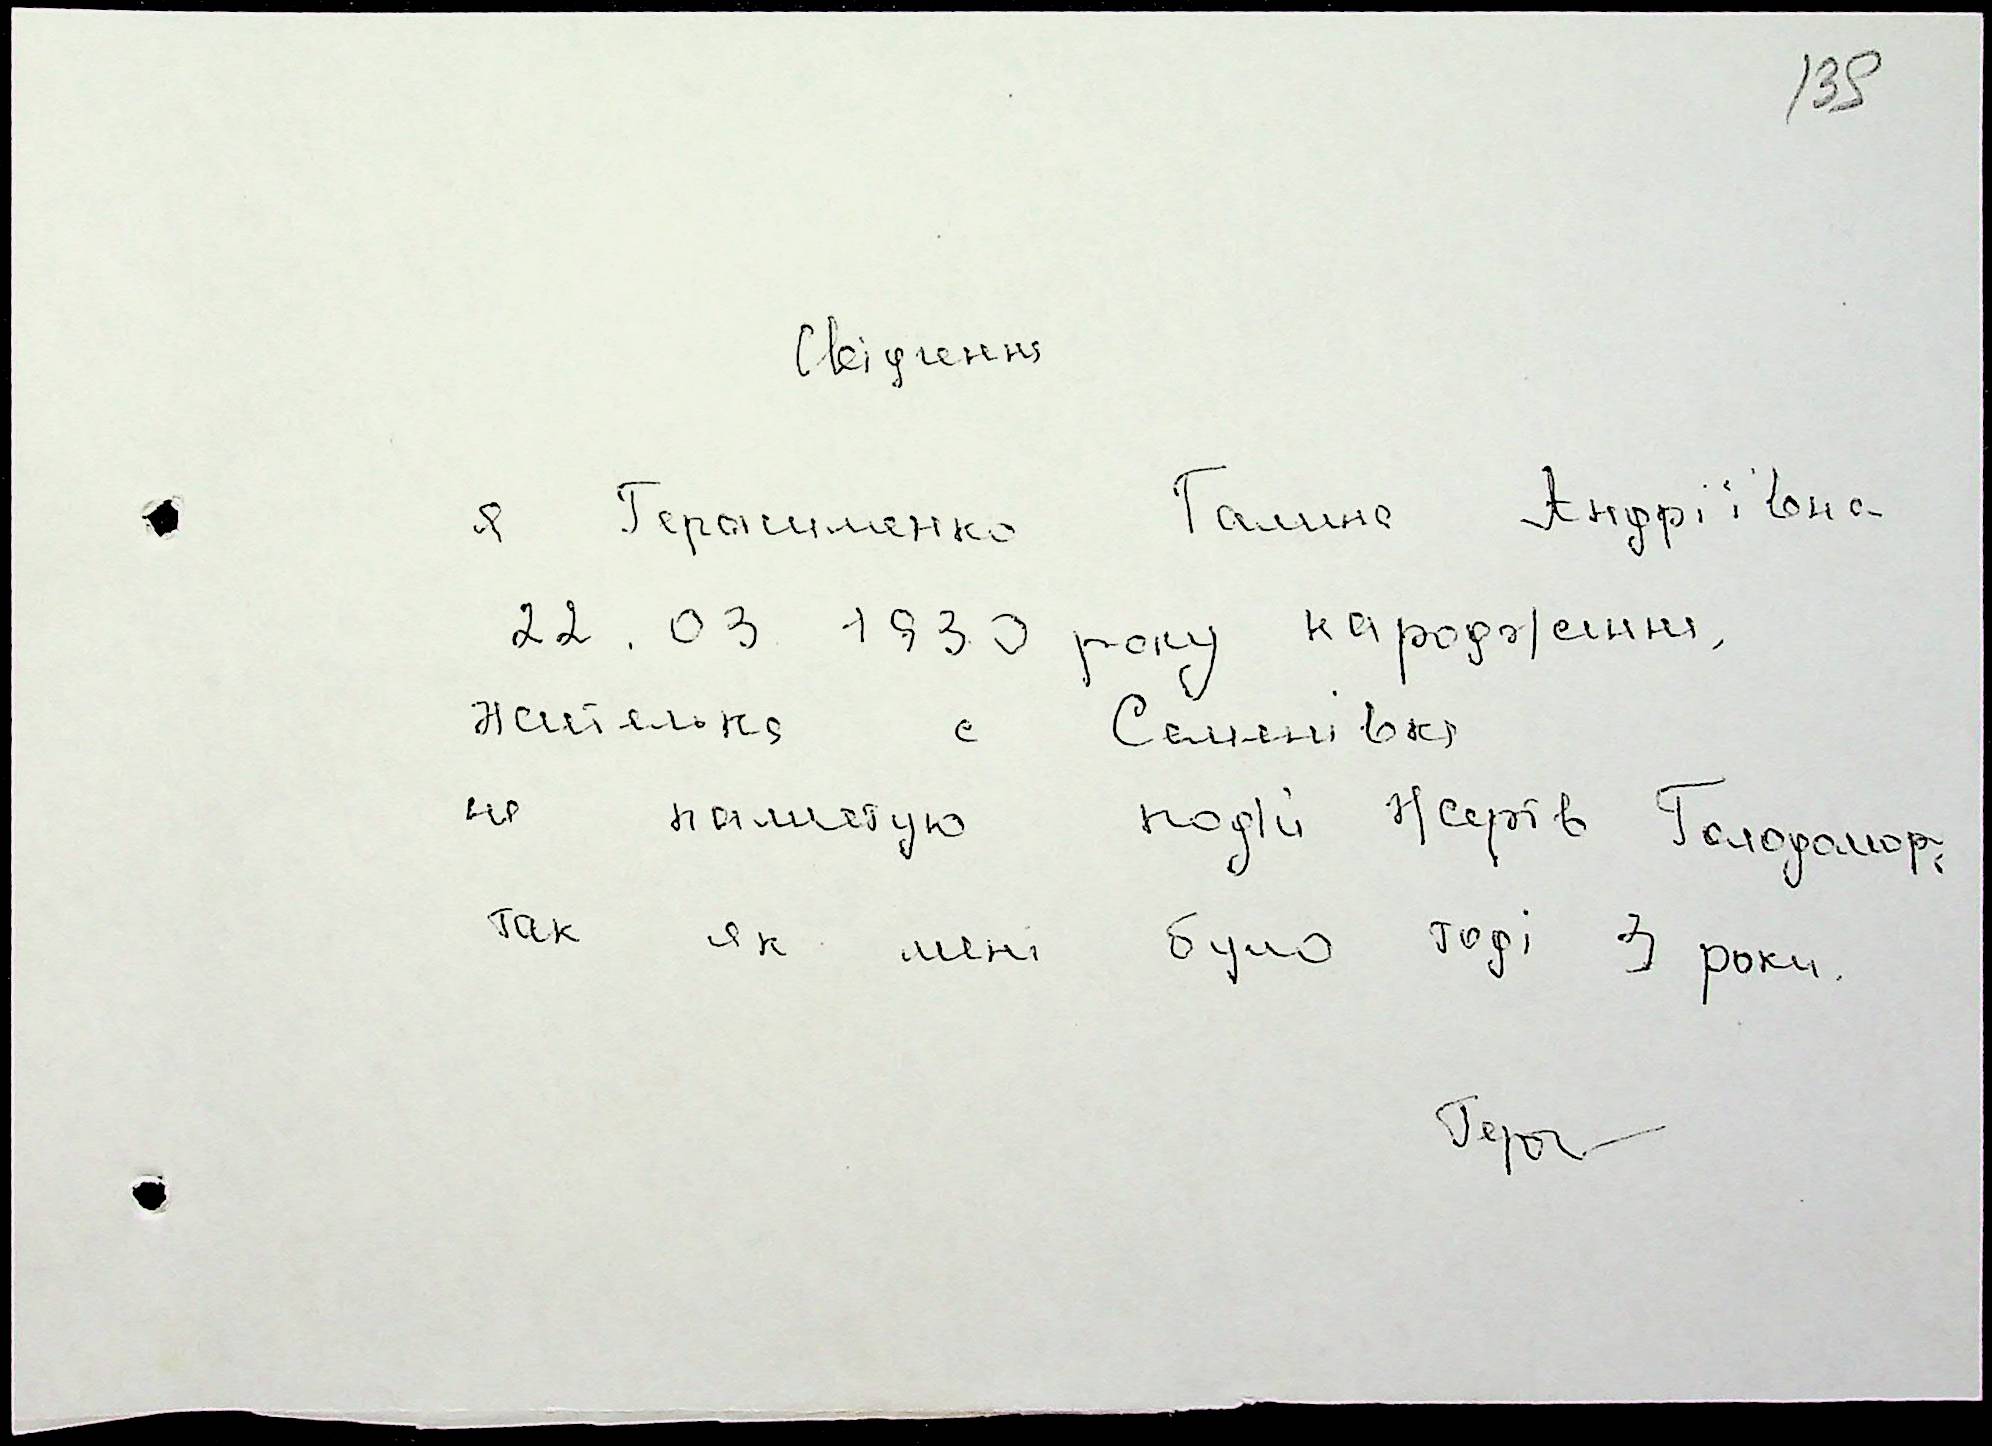 139
Свідчення
я Герасименко Галина Андріївна
22.03 1930 року народження,
жителька с Семенівка
не памятую подій жертв Голодомору
так як мені було тоді 3 роки.
Гера